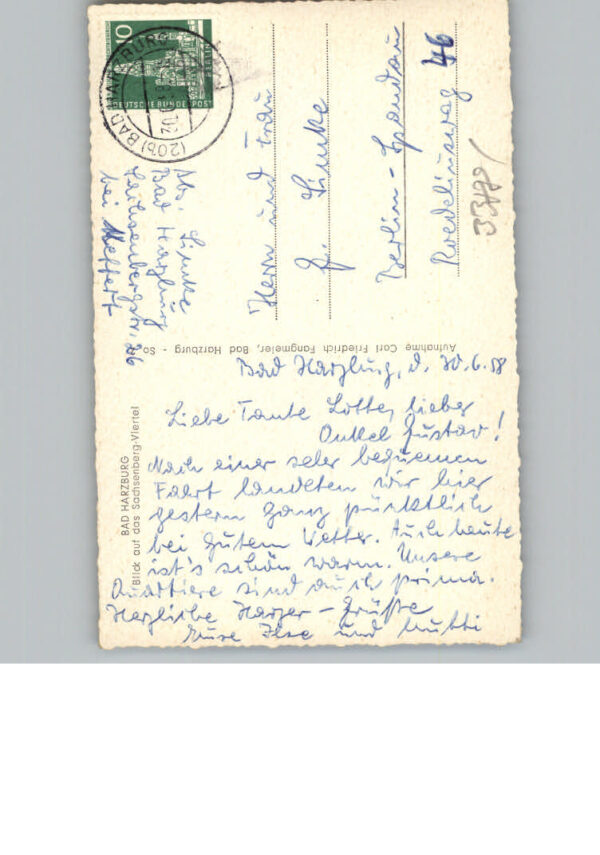 10
DEUTSCHE BUNDESPOST
BERLIN
(20b) BAD HARZBURG
Abs. Simke
Bad Harzburg
Sachsenbergstr. 26
bei Meffert
Herrn und Frau
G. Simke
Berlin-Spandau
Roedeliusweg 46
Aufnahme Carl Friedrich Fangmeier, Bad Harzburg - So
BAD HARZBURG
Blick auf das Sachsenberg-Viertel
Bad Harzburg, d. 30.6.58
Liebe Tante Lotte, lieber
Onkel Gustav!
Nach einer sehr bequemen
Fahrt landeten wir hier
gestern ganz pünktlich
bei gutem Wetter. Auch heute
ist's schön warm. Unsere
Quartiere sind auch prima.
Herzliche Harzer-Grüße
Eure Ilse und Mutti